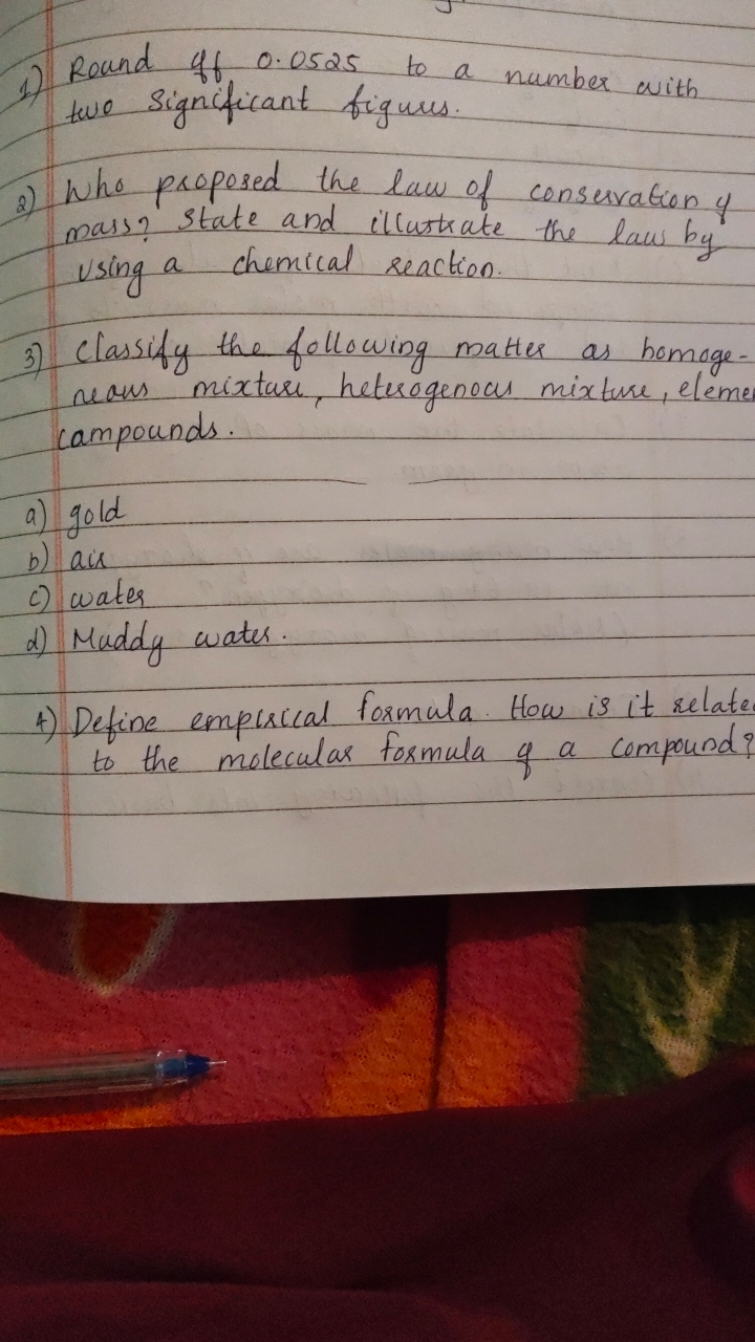 1) Round off 0.0525 to a number with
two significant figures.
2) Who proposed the law of conservation of
mass? State and illustrate the law by
using a chemical reaction.
3) Classify the following matter as homoge-
neous mixture, heterogenous mixture, eleme
compounds.
a) gold
b) air
c) water
d) Muddy water.
4) Define empirical formula. How is it relate
to the molecular formula of a compound?